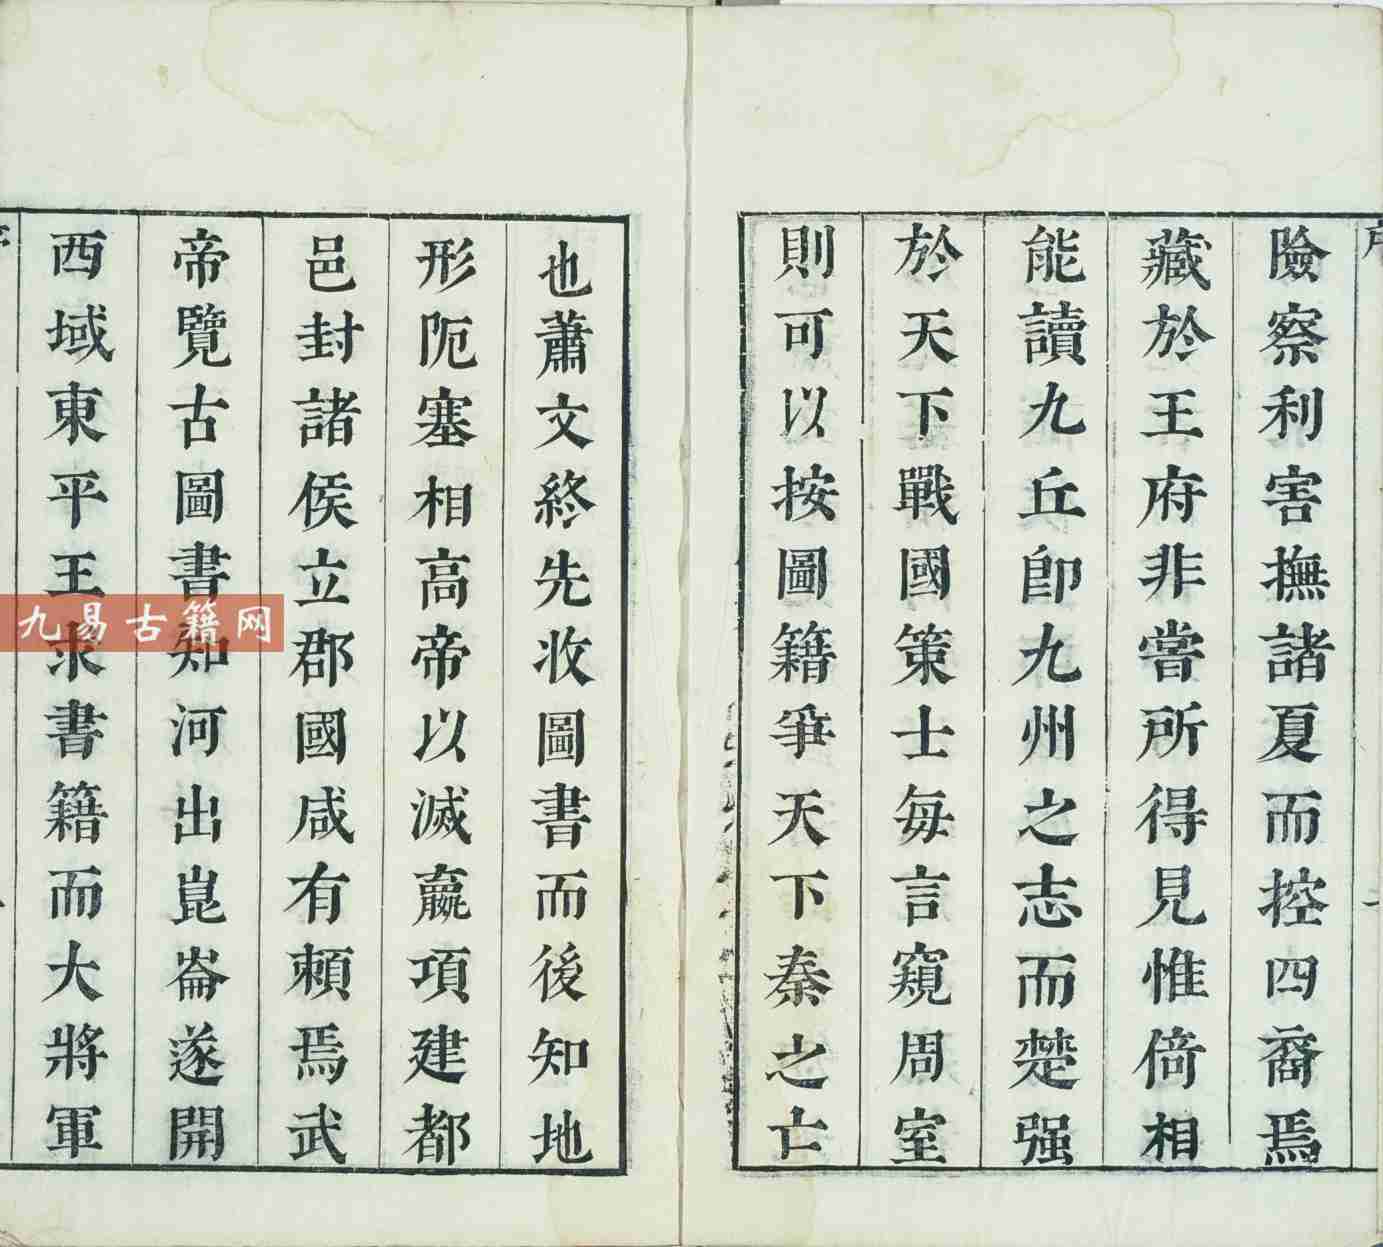 險察利害撫諸夏而控四裔焉
藏於王府非嘗所得見惟倚相
能讀九丘卽九州之志而楚强
於天下戰國策士每言窺周室
則可以按圖籍爭天下秦之亡
也蕭文終先收圖書而後知地
形阨塞相高帝以滅嬴項建都
邑封諸侯立郡國咸有賴焉武
帝覽古圖書知河出崑崙遂開
西域東平王求書籍而大將軍
九易古籍网